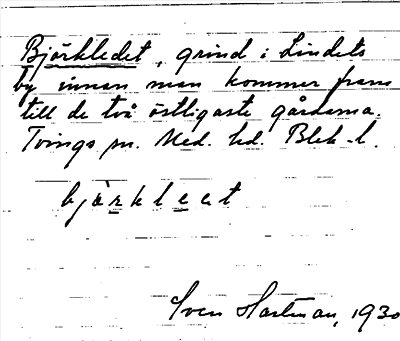 Björkledet, grind i Lindets
by innan man kommer fram
till de två östligaste gårdarna.
Tvings sn. Med. hd. Blek. l.
björkleet
Sven Hartman, 1930